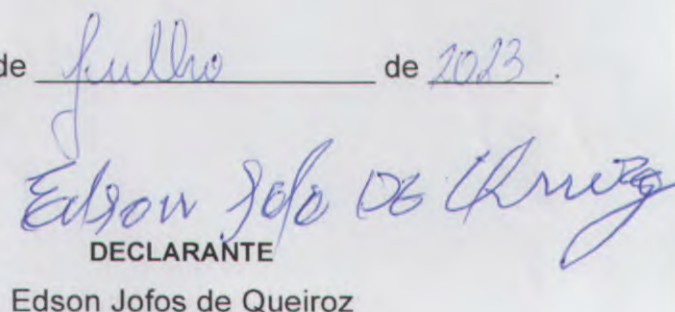 de Julho de 2023.
Edson Jofo DE Queiroz
DECLARANTE
Edson Jofos de Queiroz